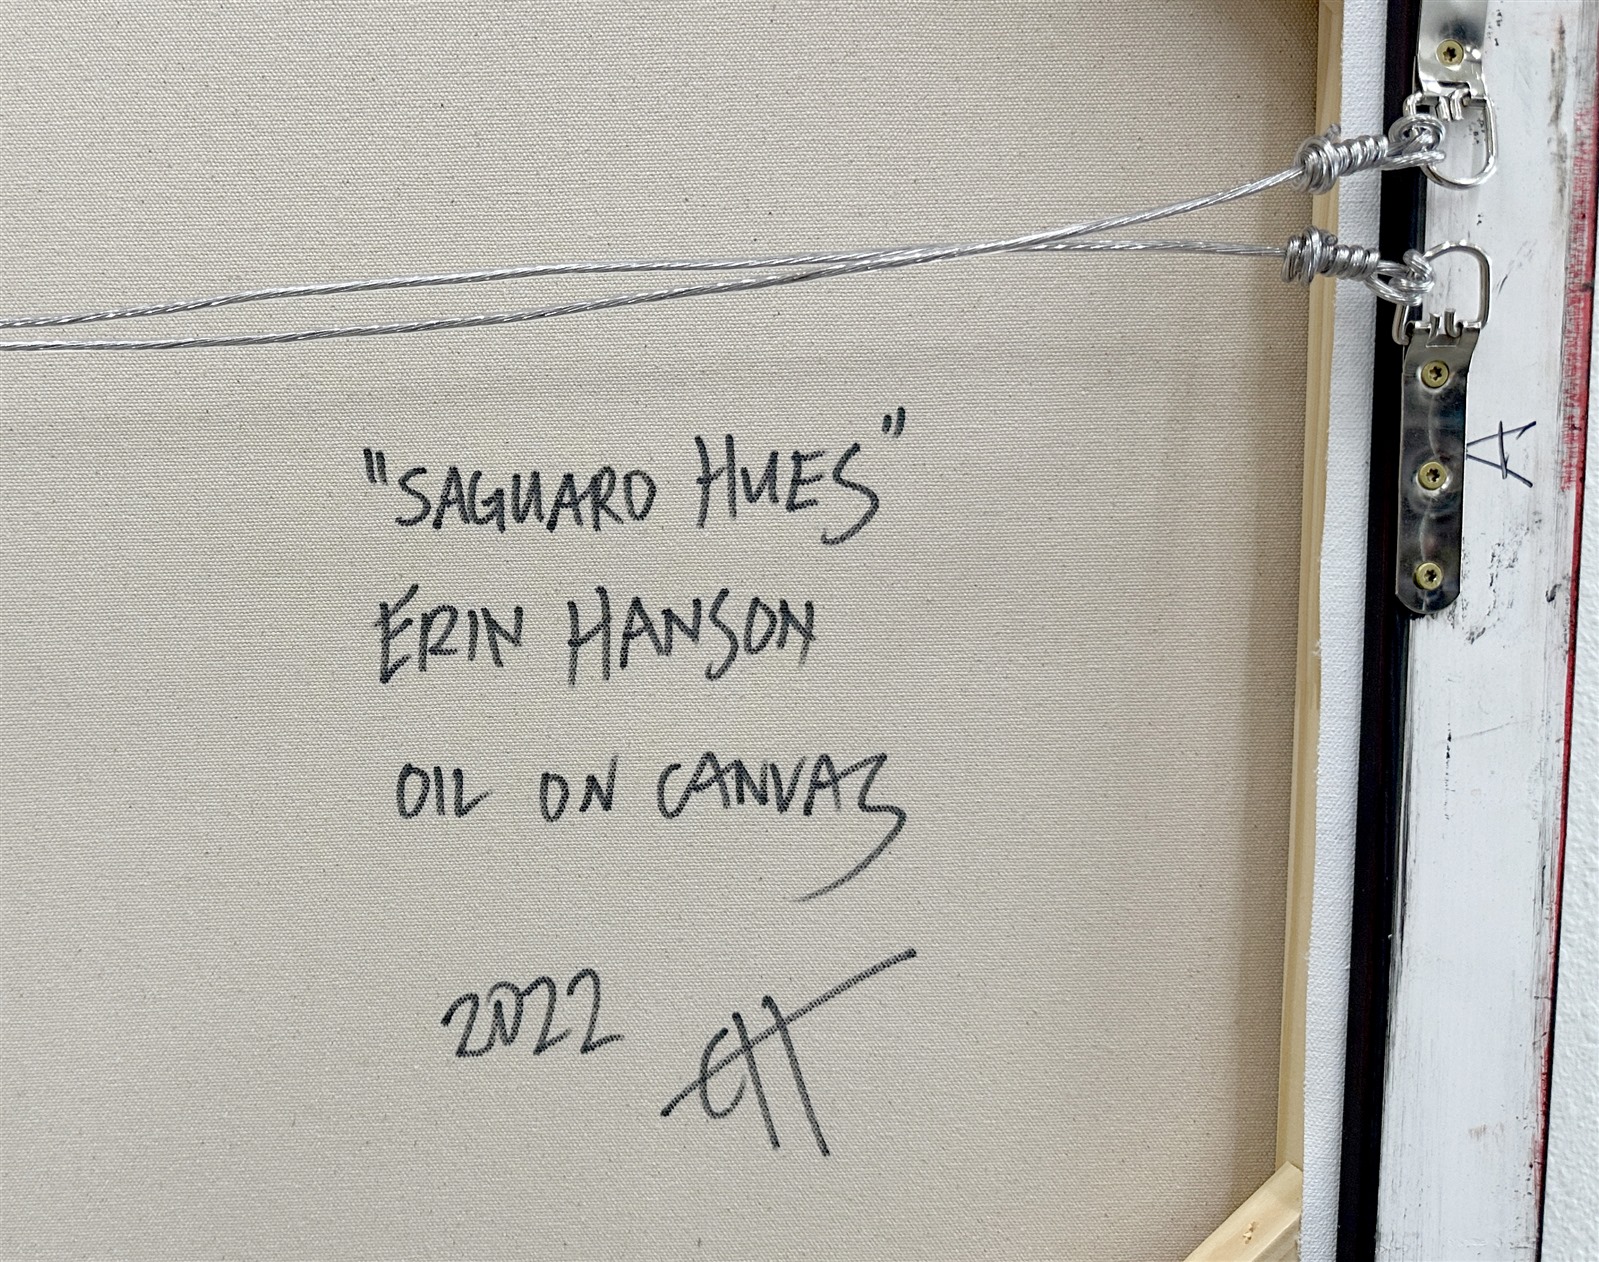 "SAGUARO HUES"
ERIN HANSON
OIL ON CANVAS
2022 EH
A